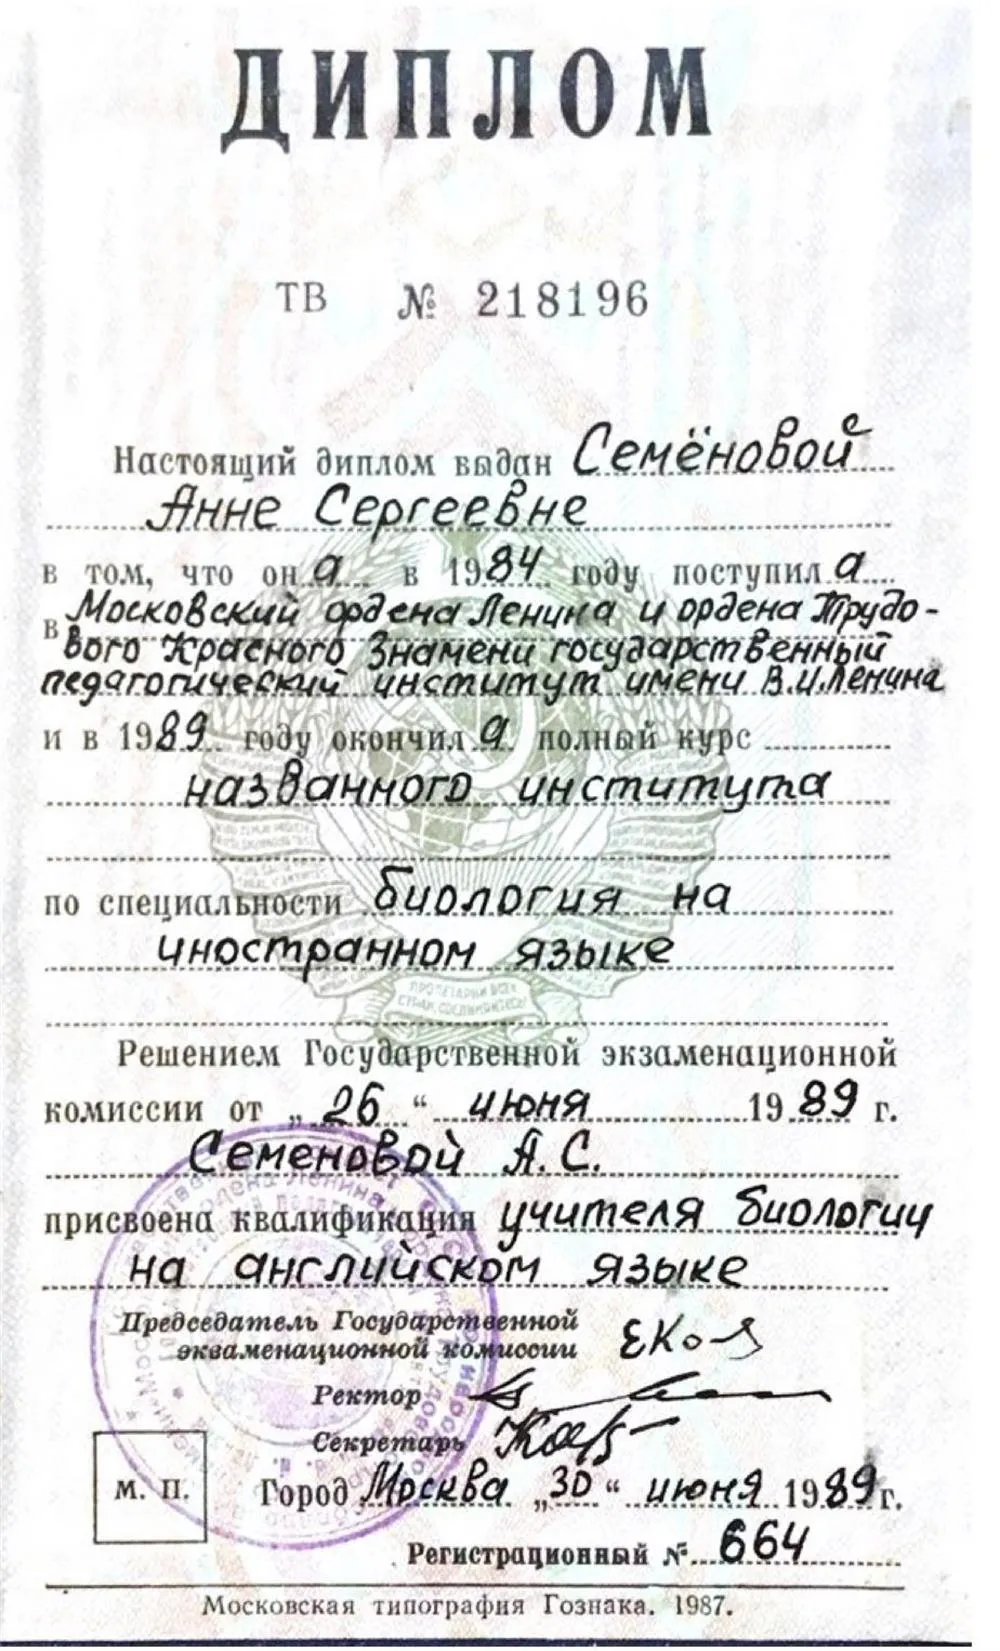 ДИПЛОМ
ТВ № 218196
Настоящий диплом выдан Семёновой
Анне Сергеевне
в том, что он а в 1984 году поступил а
в Московский ордена Ленина и ордена Трудо-
вого Красного Знамени государственный
педагогический институт имени В.И.Ленина
и в 1989 году окончил а полный курс
названного института
по специальности биология на
иностранном языке
Решением Государственной экзаменационной
комиссии от „26“ июня 1989 г.
Семеновой А.С.
присвоена квалификация учителя биологии
на английском языке
Председатель Государственной
экзаменационной комиссии
Ректор
Секретарь
М. П.
Город Москва „30“ июня 1989 г.
Регистрационный № 664
Московская типография Гознака. 1987.